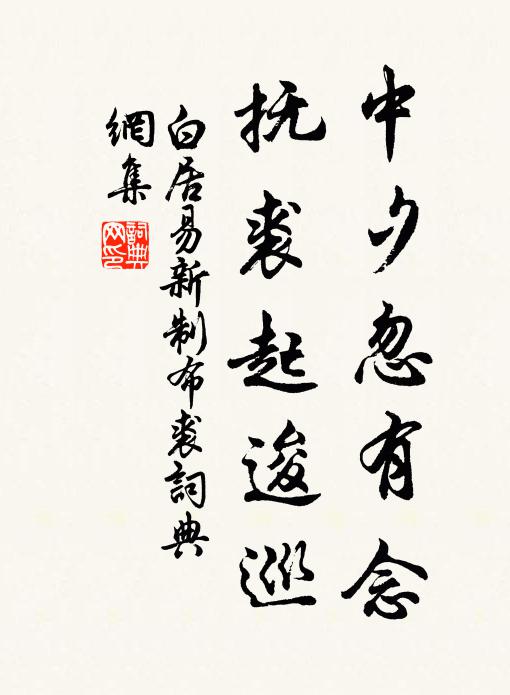 中夕忽有念
抚裘起逡巡
白居易新制布裘詞典
網集
詞典
网印